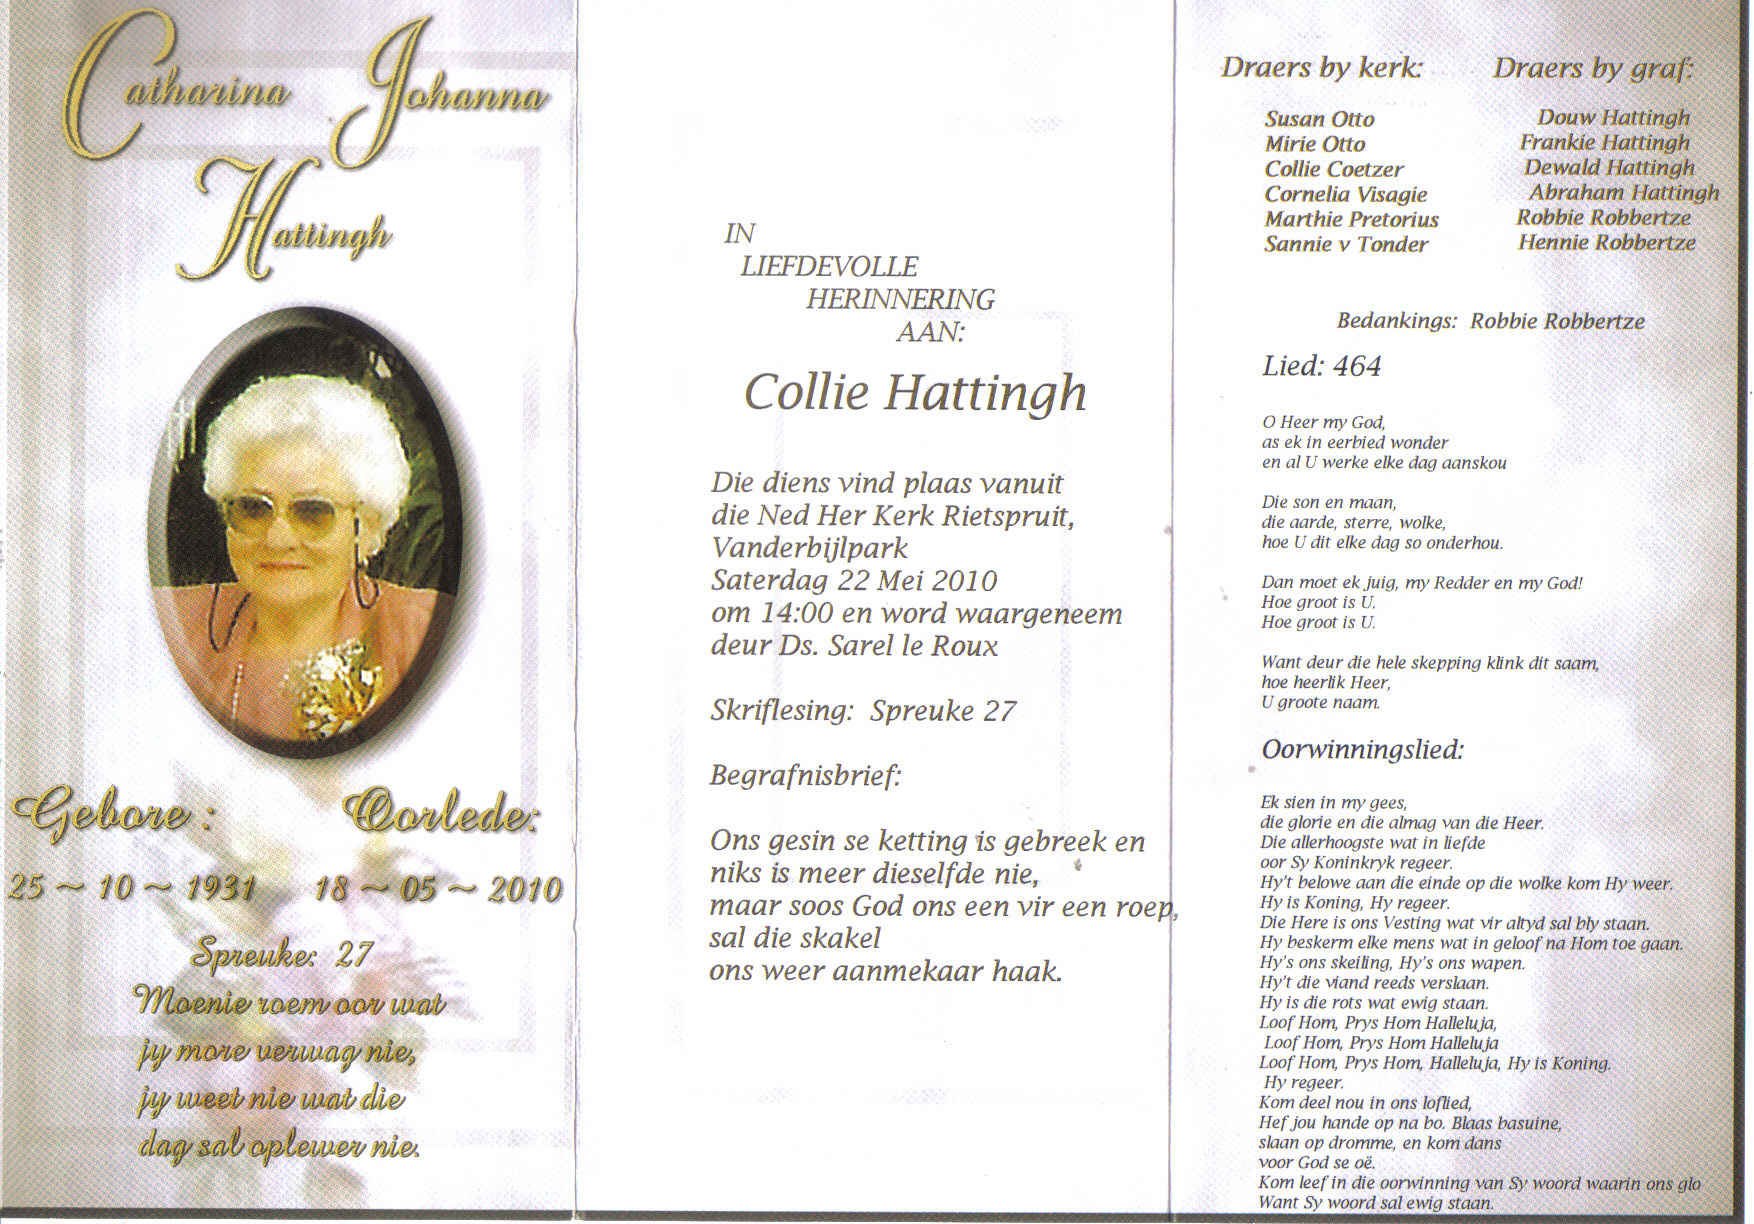 Catharina Johanna
Hattingh
Gebore : Oorlede:
25 ~ 10 ~ 1931 18 ~ 05 ~ 2010
Spreuke: 27
Moenie roem oor wat
jy more verwag nie,
jy weet nie wat die
dag sal oplewer nie.
IN
LIEFDEVOLLE
HERINNERING
AAN:
Collie Hattingh
Die diens vind plaas vanuit
die Ned Her Kerk Rietspruit,
Vanderbijlpark
Saterdag 22 Mei 2010
om 14:00 en word waargeneem
deur Ds. Sarel le Roux
Skriflesing: Spreuke 27
Begrafnisbrief:
Ons gesin se ketting is gebreek en
niks is meer dieselfde nie,
maar soos God ons een vir een roep,
sal die skakel
ons weer aanmekaar haak.
Draers by kerk:
Susan Otto
Mirie Otto
Collie Coetzer
Cornelia Visagie
Marthie Pretorius
Sannie v Tonder
Draers by graf:
Douw Hattingh
Frankie Hattingh
Dewald Hattingh
Abraham Hattingh
Robbie Robbertze
Hennie Robbertze
Bedankings: Robbie Robbertze
Lied: 464
O Heer my God,
as ek in eerbied wonder
en al U werke elke dag aanskou
Die son en maan,
die aarde, sterre, wolke,
hoe U dit elke dag so onderhou.
Dan moet ek juig, my Redder en my God!
Hoe groot is U.
Hoe groot is U.
Want deur die hele skepping klink dit saam,
hoe heerlik Heer,
U groote naam.
Oorwinningslied:
Ek sien in my gees,
die glorie en die almag van die Heer.
Die allerhoogste wat in liefde
oor Sy Koninkryk regeer.
Hy't belowe aan die einde op die wolke kom Hy weer.
Hy is Koning, Hy regeer.
Die Here is ons Vesting wat vir altyd sal bly staan.
Hy beskerm elke mens wat in geloof na Hom toe gaan.
Hy's ons skeiling, Hy's ons wapen.
Hy't die viand reeds verslaan.
Hy is die rots wat ewig staan.
Loof Hom, Prys Hom Halleluja,
Loof Hom, Prys Hom Halleluja
Loof Hom, Prys Hom, Halleluja, Hy is Koning.
Hy regeer.
Kom deel nou in ons loflied,
Hef jou hande op na bo. Blaas basuine,
slaan op dromme, en kom dans
voor God se oë.
Kom leef in die oorwinning van Sy woord waarin ons glo
Want Sy woord sal ewig staan.